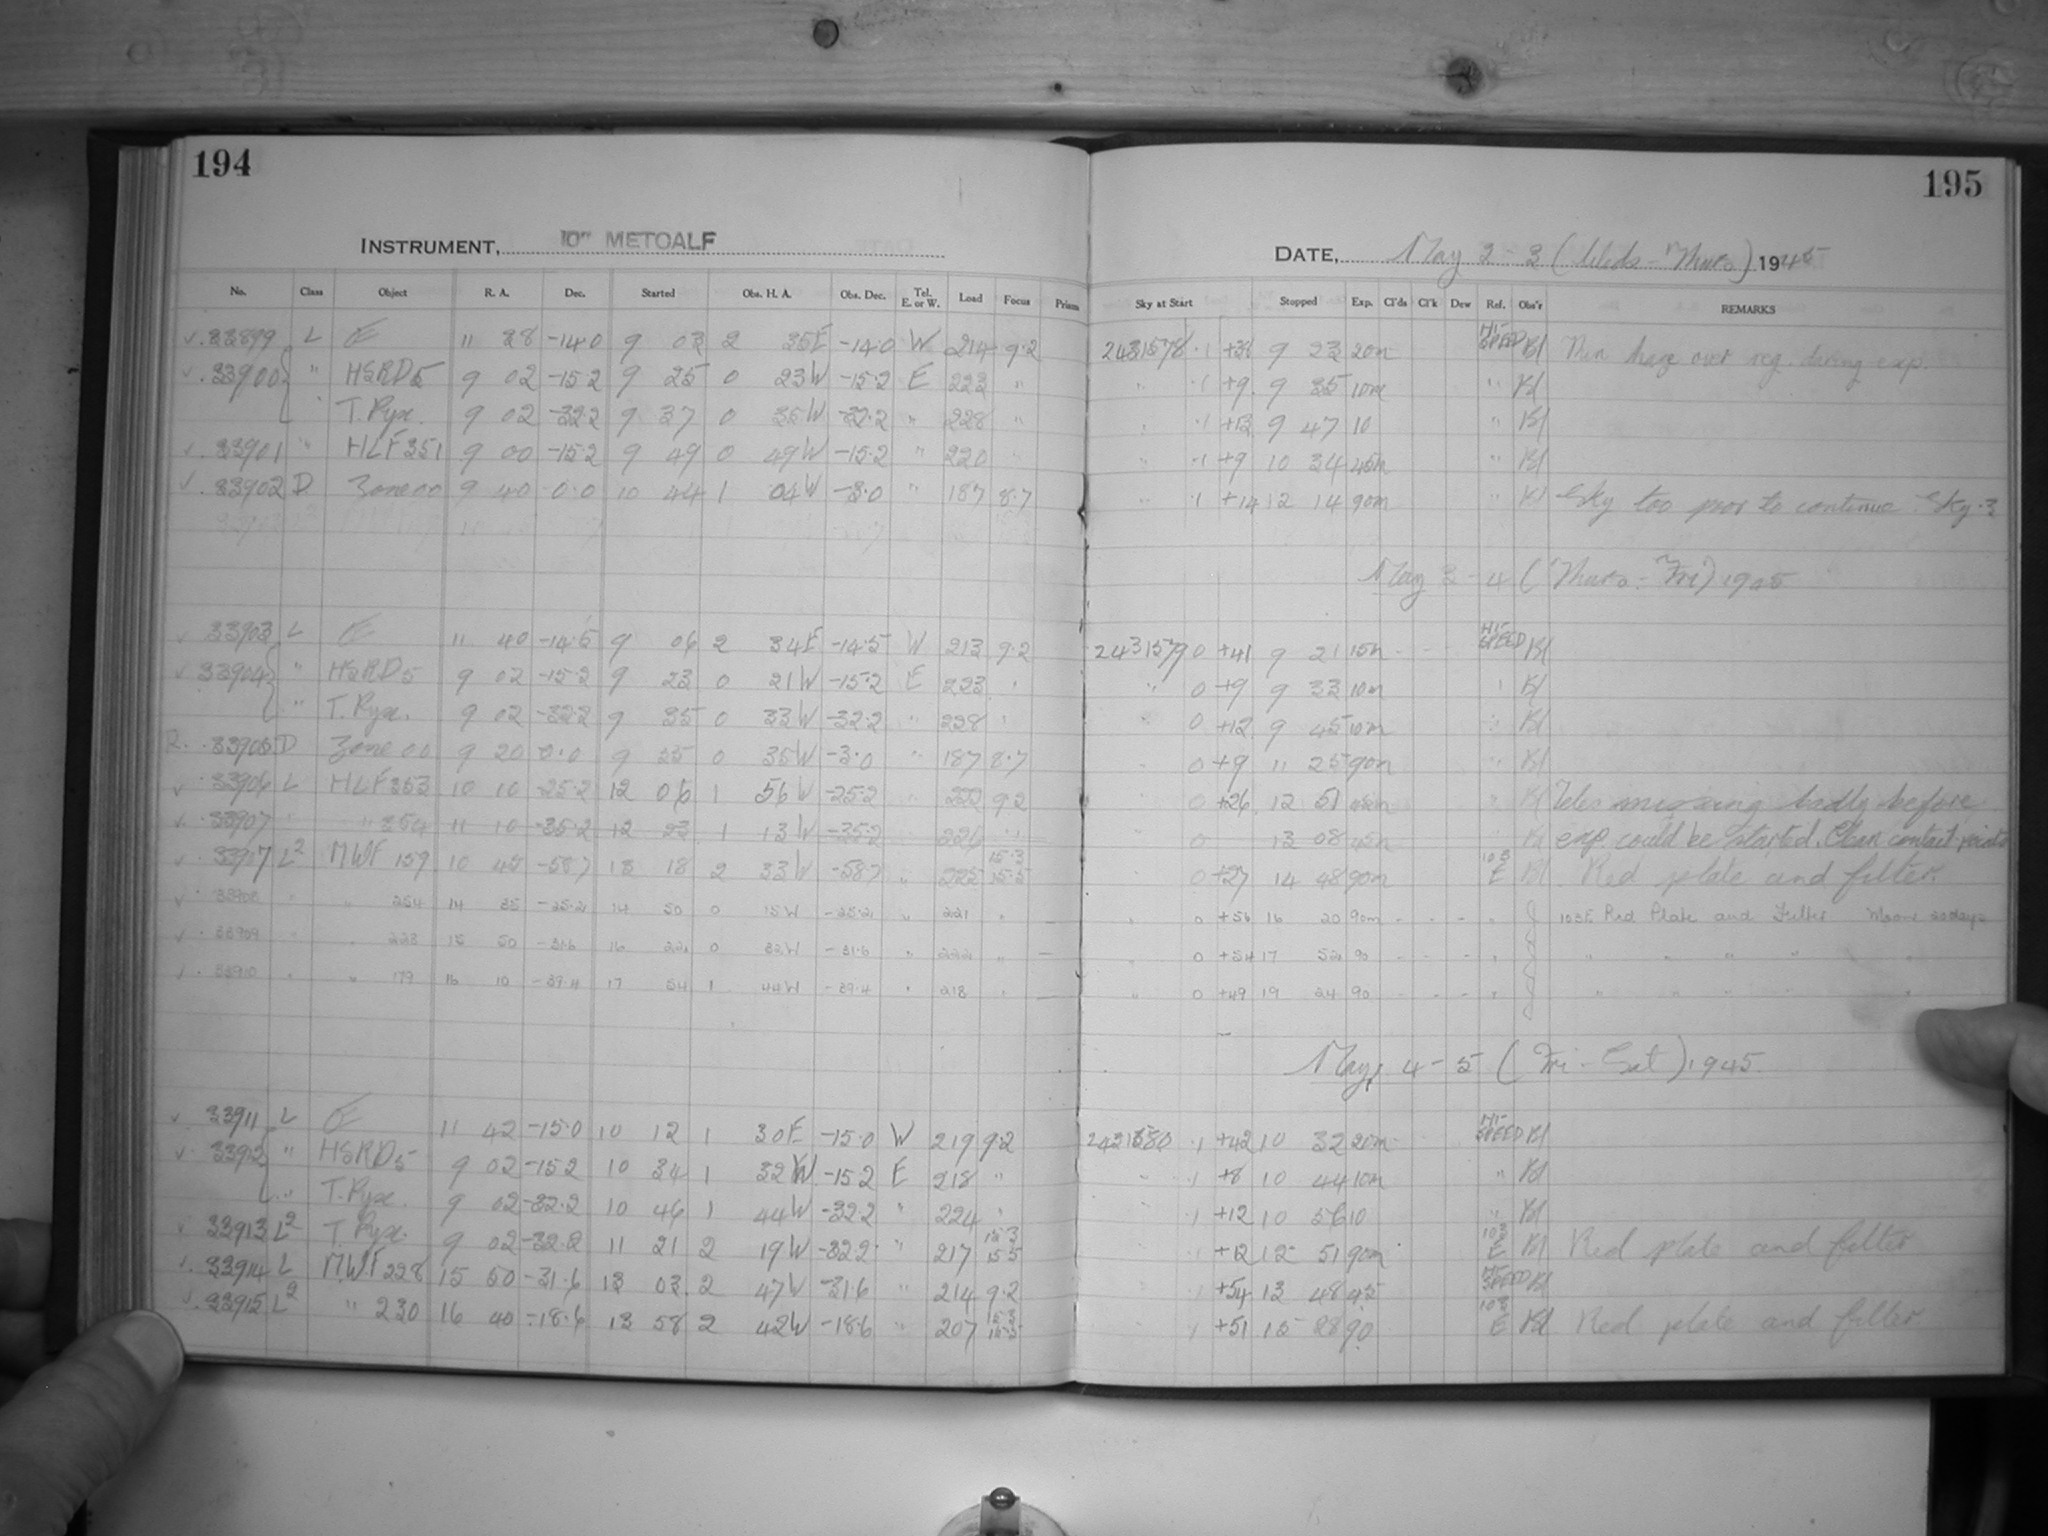 194
195
INSTRUMENT, 10" METCALF
DATE, May 2-3 (Weds-Thurs) 1945
No. Class Object R. A. Dec. Started Obs. H. A. Obs. Dec. Tel. E. or W. Load Focus Prism Sky at Start Stopped Exp. Cl'ds Cl'k Dew Ref. Obs'r REMARKS
33899 L 11 38 -14.0 9 03 2 35E -14.0 W 214 9.2 2431578 .1 +38 9 23 20m HI-SPEED Bl Thin haze over reg. during exp.
33900 " HSRD5 9 02 -15.2 9 25 0 23W -15.2 E 223 " " .1 +9 9 35 10m " Bl
T. Pyx. 9 02 -32.2 9 37 0 35W -32.2 " 228 " .1 +12 9 47 10 " Bl
33901 " HLF351 9 00 -15.2 9 49 0 49W -15.2 " 220 " .1 +9 10 34 45m " Bl
33902 D Zone00 9 40 0.0 10 44 1 04W -3.0 " 187 8.7 " .1 +14 12 14 90m " Bl Sky too poor to continue Sky .3
May 3-4 (Thurs-Fri) 1945
33903 L 11 40 -14.5 9 06 2 34E -14.5 W 213 9.2 2431579 0 +41 9 21 15m HI-SPEED Bl
33904 " HSRD5 9 02 -15.2 9 23 0 21W -15.2 E 223 " " 0 +9 9 33 10m " Bl
" T. Pyx. 9 02 -32.2 9 35 0 33W -32.2 " 228 " " 0 +12 9 45 10m " Bl
R. 33905 D Zone 00 9 20 0.0 9 55 0 35W -3.0 " 187 8.7 0 +9 11 25 90m " Bl
33906 L HLF353 10 10 -25.2 12 06 1 56W -25.2 " 222 9.2 0 +26 12 51 45m " Bl Teles missing badly before
33907 " " 354 11 10 -35.2 12 23 1 13W -35.2 226 " 0 13 08 45m " Bl exp. could be started. Clean contact points
33917 L2 MWF 159 10 45 -58.7 13 18 2 33W -58.7 " 225 15.3 15.5 0 +27 14 48 90m 103 E Bl Red plate and filter.
33908 " " 254 14 35 -25.2 14 50 0 15W -25.2 " 221 " — " 0 +56 16 20 90m - - - " J 103E Red Plate and Filter Moon 20 days
33909 " " 228 15 50 -31.6 16 22 0 32W -31.6 " 222 " — " 0 +54 17 52 90 - - - " J " " " " "
33910 " " 179 16 10 -39.4 17 54 1 44W -39.4 " 218 " — " 0 +49 19 24 90 - - - " J " " " " "
May 4-5 (Fri-Sat) 1945
33911 L 11 42 -15.0 10 12 1 30E -15.0 W 219 9.2 2431580 .1 +42 10 32 20m HI-SPEED Bl
33912 " HSRD5 9 02 -15.2 10 34 1 32W -15.2 E 218 " " .1 +8 10 44 10m " Bl
" T. Pyx. 9 02 -32.2 10 46 1 44W -32.2 " 224 " .1 +12 10 56 10 " Bl
33913 L2 T. Pyx. 9 02 -32.2 11 21 2 19W -32.2 " 217 15.3 15.5 .1 +12 12 51 90m 103 E Bl Red plate and filter
33914 L MWF 228 15 50 -31.6 13 03 2 47W -31.6 " 214 9.2 .1 +54 13 48 45 HI-SPEED Bl
33915 L2 " 230 16 40 -18.6 13 58 2 42W -18.6 " 207 15.3 15.5 .1 +51 15 28 90 103 E Bl Red plate and filter